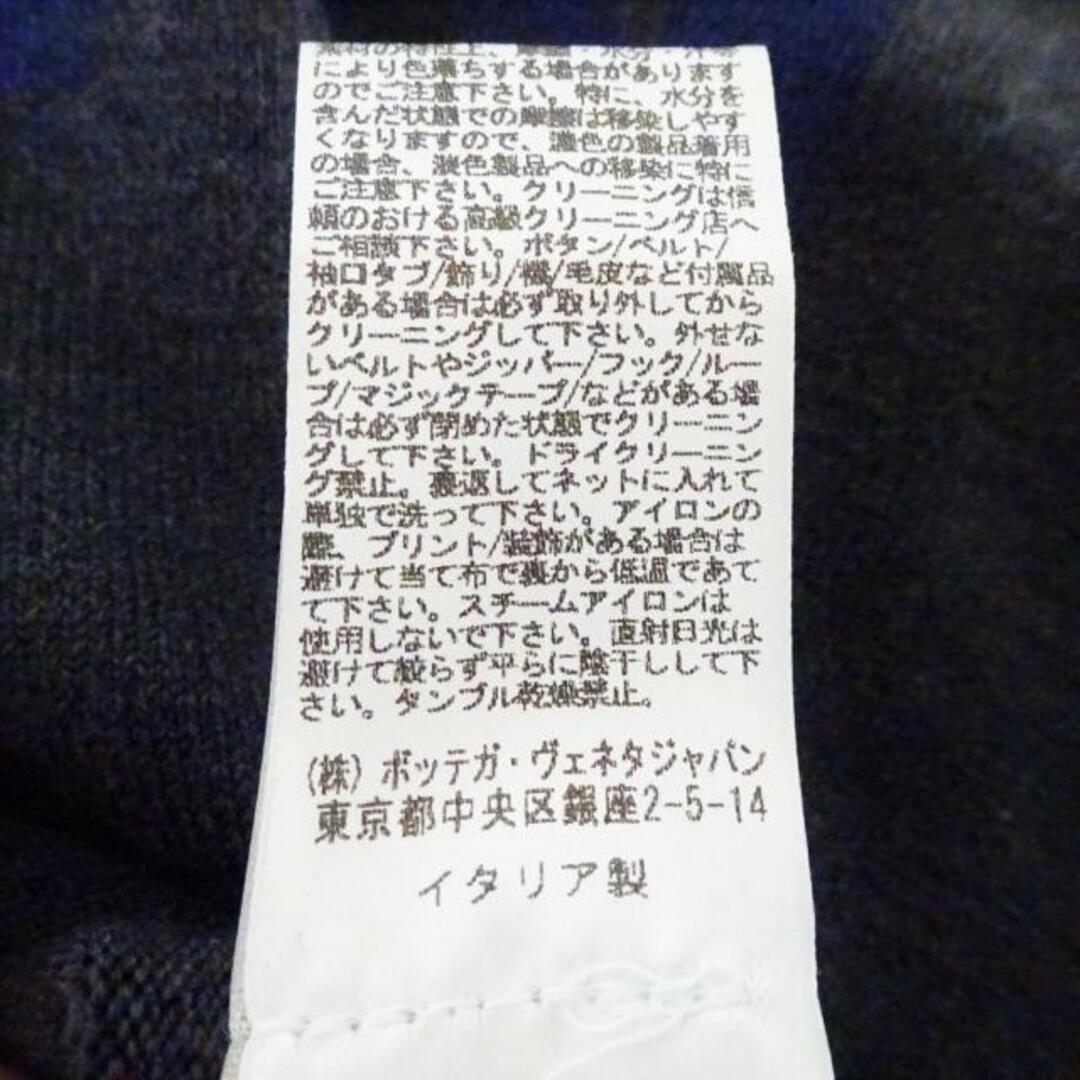 素材の特性上、摩擦・水分・汗等
により色落ちする場合があります
のでご注意下さい。特に、水分を
含んだ状態での摩擦は移染しやす
くなりますので、濃色の製品着用
の場合、淡色製品への移染に特に
ご注意下さい。クリーニングは信
頼のおける高級クリーニング店へ
ご相談下さい。ボタン/ベルト/
袖口タブ/飾り/機/毛皮など付属品
がある場合は必ず取り外してから
クリーニングして下さい。外せな
いベルトやジッパー/フック/ルー
プ/マジックテープ/などがある場
合は必ず閉めた状態でクリーニン
グして下さい。ドライクリーニン
グ禁止。裏返してネットに入れて
単独で洗って下さい。アイロンの
際、プリント/装飾がある場合は
避けて当て布で裏から低温であて
て下さい。スチームアイロンは
使用しないで下さい。直射日光は
避けて絞らず平らに陰干しして下
さい。タンブル乾燥禁止。
(株) ボッテガ・ヴェネタジャパン
東京都中央区銀座2-5-14
イタリア製